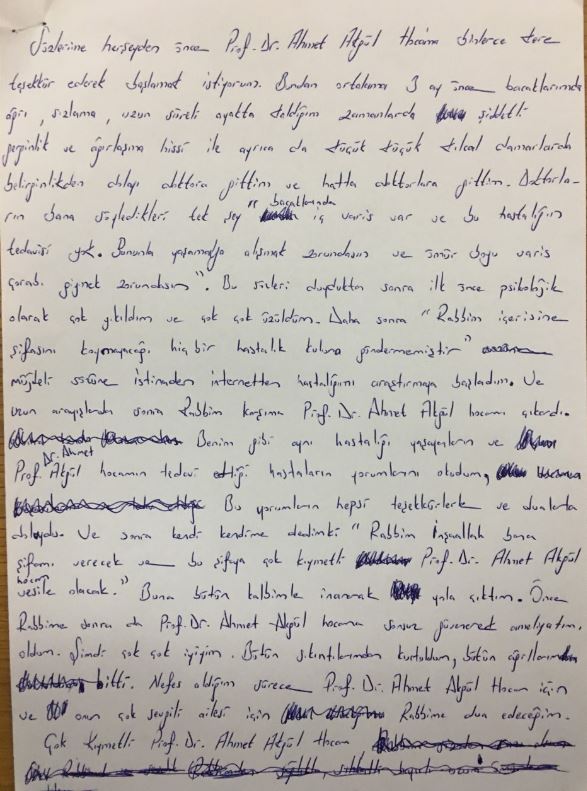 Sözlerime herşeyden önce Prof. Dr. Ahmet Akgül Hocama binlerce kere
teşekkür ederek başlamak istiyorum. Bundan ortalama 3 ay önce bacaklarımda
ağrı, sızlama, uzun süreli ayakta kaldığım zamanlarda şiddetli
gerginlik ve ağırlaşma hissi ile ayrıca da küçük küçük kılcal damarlarda
belirginlikden dolayı doktora gittim ve hatta doktorlara gittim. Doktorla-
rın bana söyledikleri tek şey "bacaklarında iç varis var ve bu hastalığın
tedavisi yok. Bununla yaşamağa alışmak zorundasın ve ömür boyu varis
çorabı giymek zorundasın". Bu sözleri duyduktan sonra ilk önce psikolojik
olarak çok yıkıldım ve çok çok üzüldüm. Daha sonra "Rabbim içerisine
şifasını koymayacağı hiç bir hastalık kuluna göndermemiştir"
müjdeli sözüne istinaden internetten hastalığımı araştırmaya başladım. Ve
uzun arayışlarda sonra Rabbim karşıma Prof. Dr. Ahmet Akgül hocamı çıkardı.
Benim gibi aynı hastalığı yaşayanların ve
Prof. Dr. Ahmet Akgül hocamın tedavi ettiği hastaların yorumlarını okudum,
Bu yorumların hepsi teşekkürlerle ve dualarla
doluydu. Ve sonra kendi kendime dedimki "Rabbim İnşaallah bana
şifamı verecek ve bu şifaya çok kıymetli Prof. Dr. Ahmet Akgül
hocam vesile olacak." Buna bütün kalbimle inanarak yola çıktım. Önce
Rabbime sonra da Prof. Dr. Ahmet Akgül hocama sonsuz güvenerek ameliyatım.
oldum. Şimdi çok çok iyiyim. Bütün sıkıntılarımdan kurtuldum, bütün ağrılarım
bitti. Nefes aldığım sürece Prof. Dr. Ahmet Akgül Hocam için
ve onun çok sevgili ailesi için Rabbime dua edeceğim.
Çok Kıymetli Prof. Dr. Ahmet Akgül Hocam